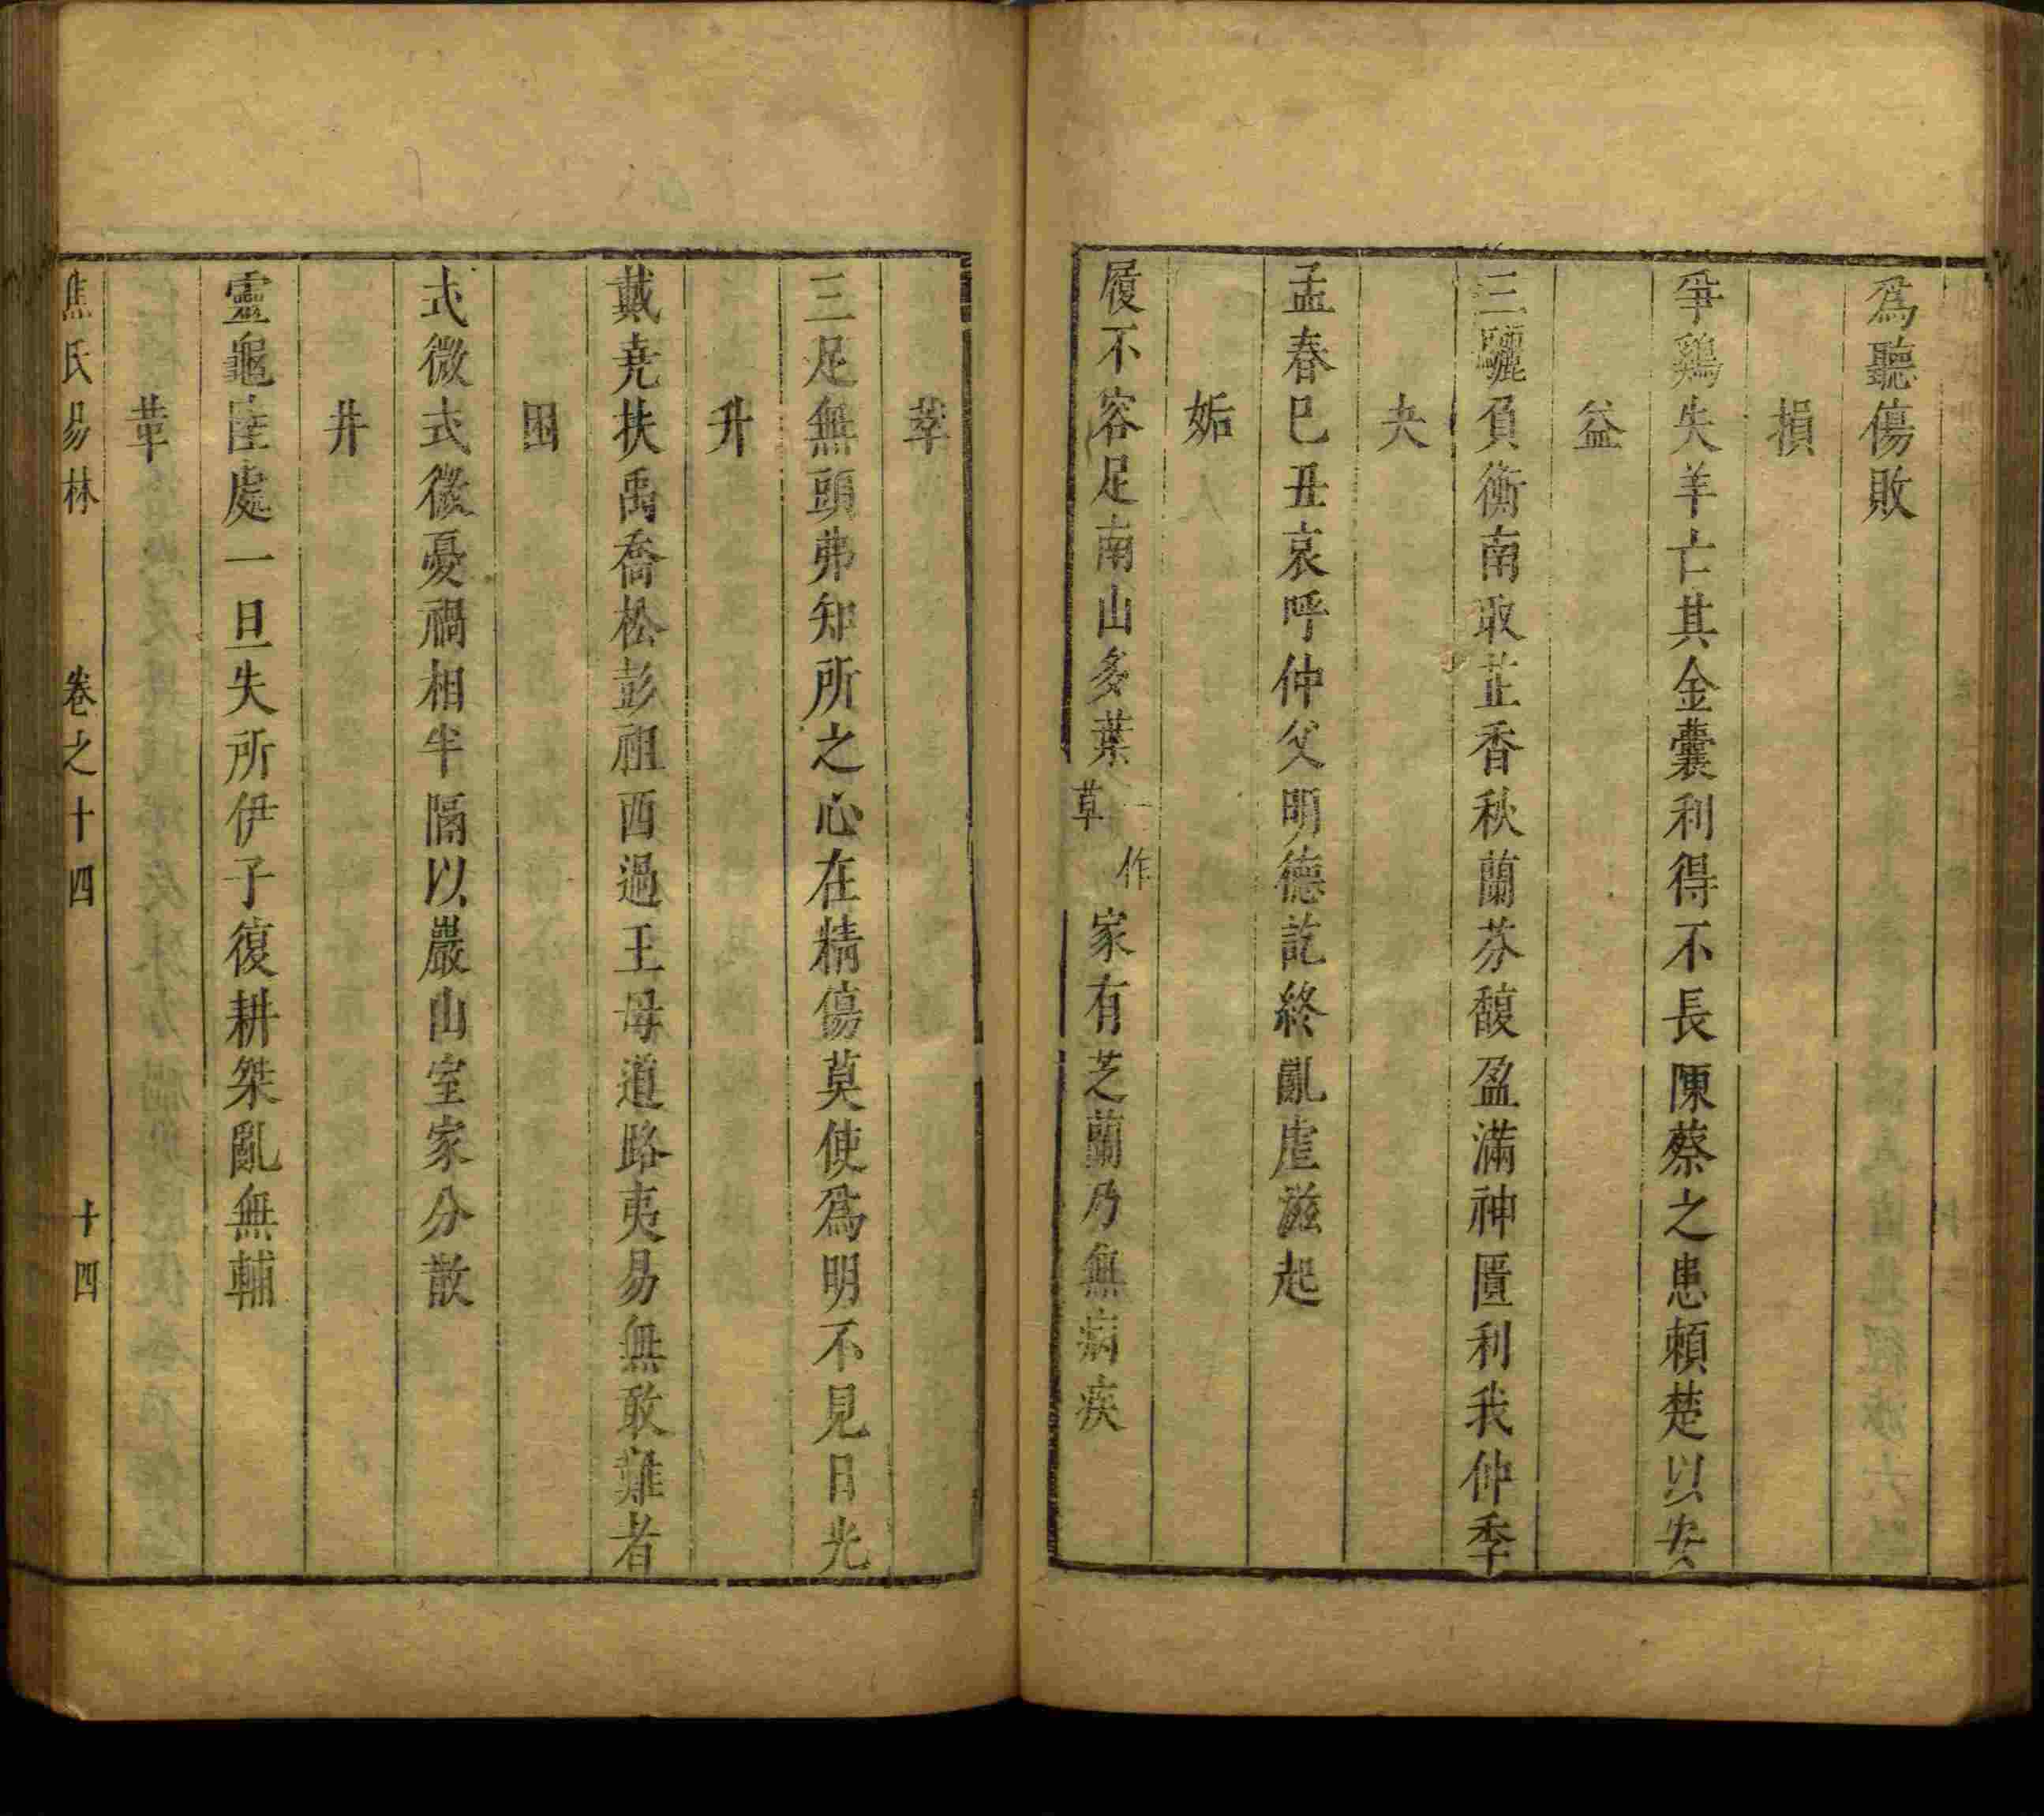 爲聽傷敗
損
爭鷄失羊亡其金囊利得不長陳蔡之患賴楚以安
益
三驪負衡南取芷香秋蘭芬馥盈滿神匱利我仲季
夬
孟春巳丑哀呼仲父明德訖終亂虐滋起
姤
履不容足南山多葉一作草家有芝蘭乃無病疾
萃
三足無頭弗知所之心在精傷莫使爲明不見日光
升
戴堯扶禹喬松彭祖西過王母道路夷易無敢難者
困
式微式微憂禍相半隔以嚴山室家分散
井
靈龜陸處一旦失所伊子復耕桀亂無輔
革
焦氏易林 卷之十四 十四